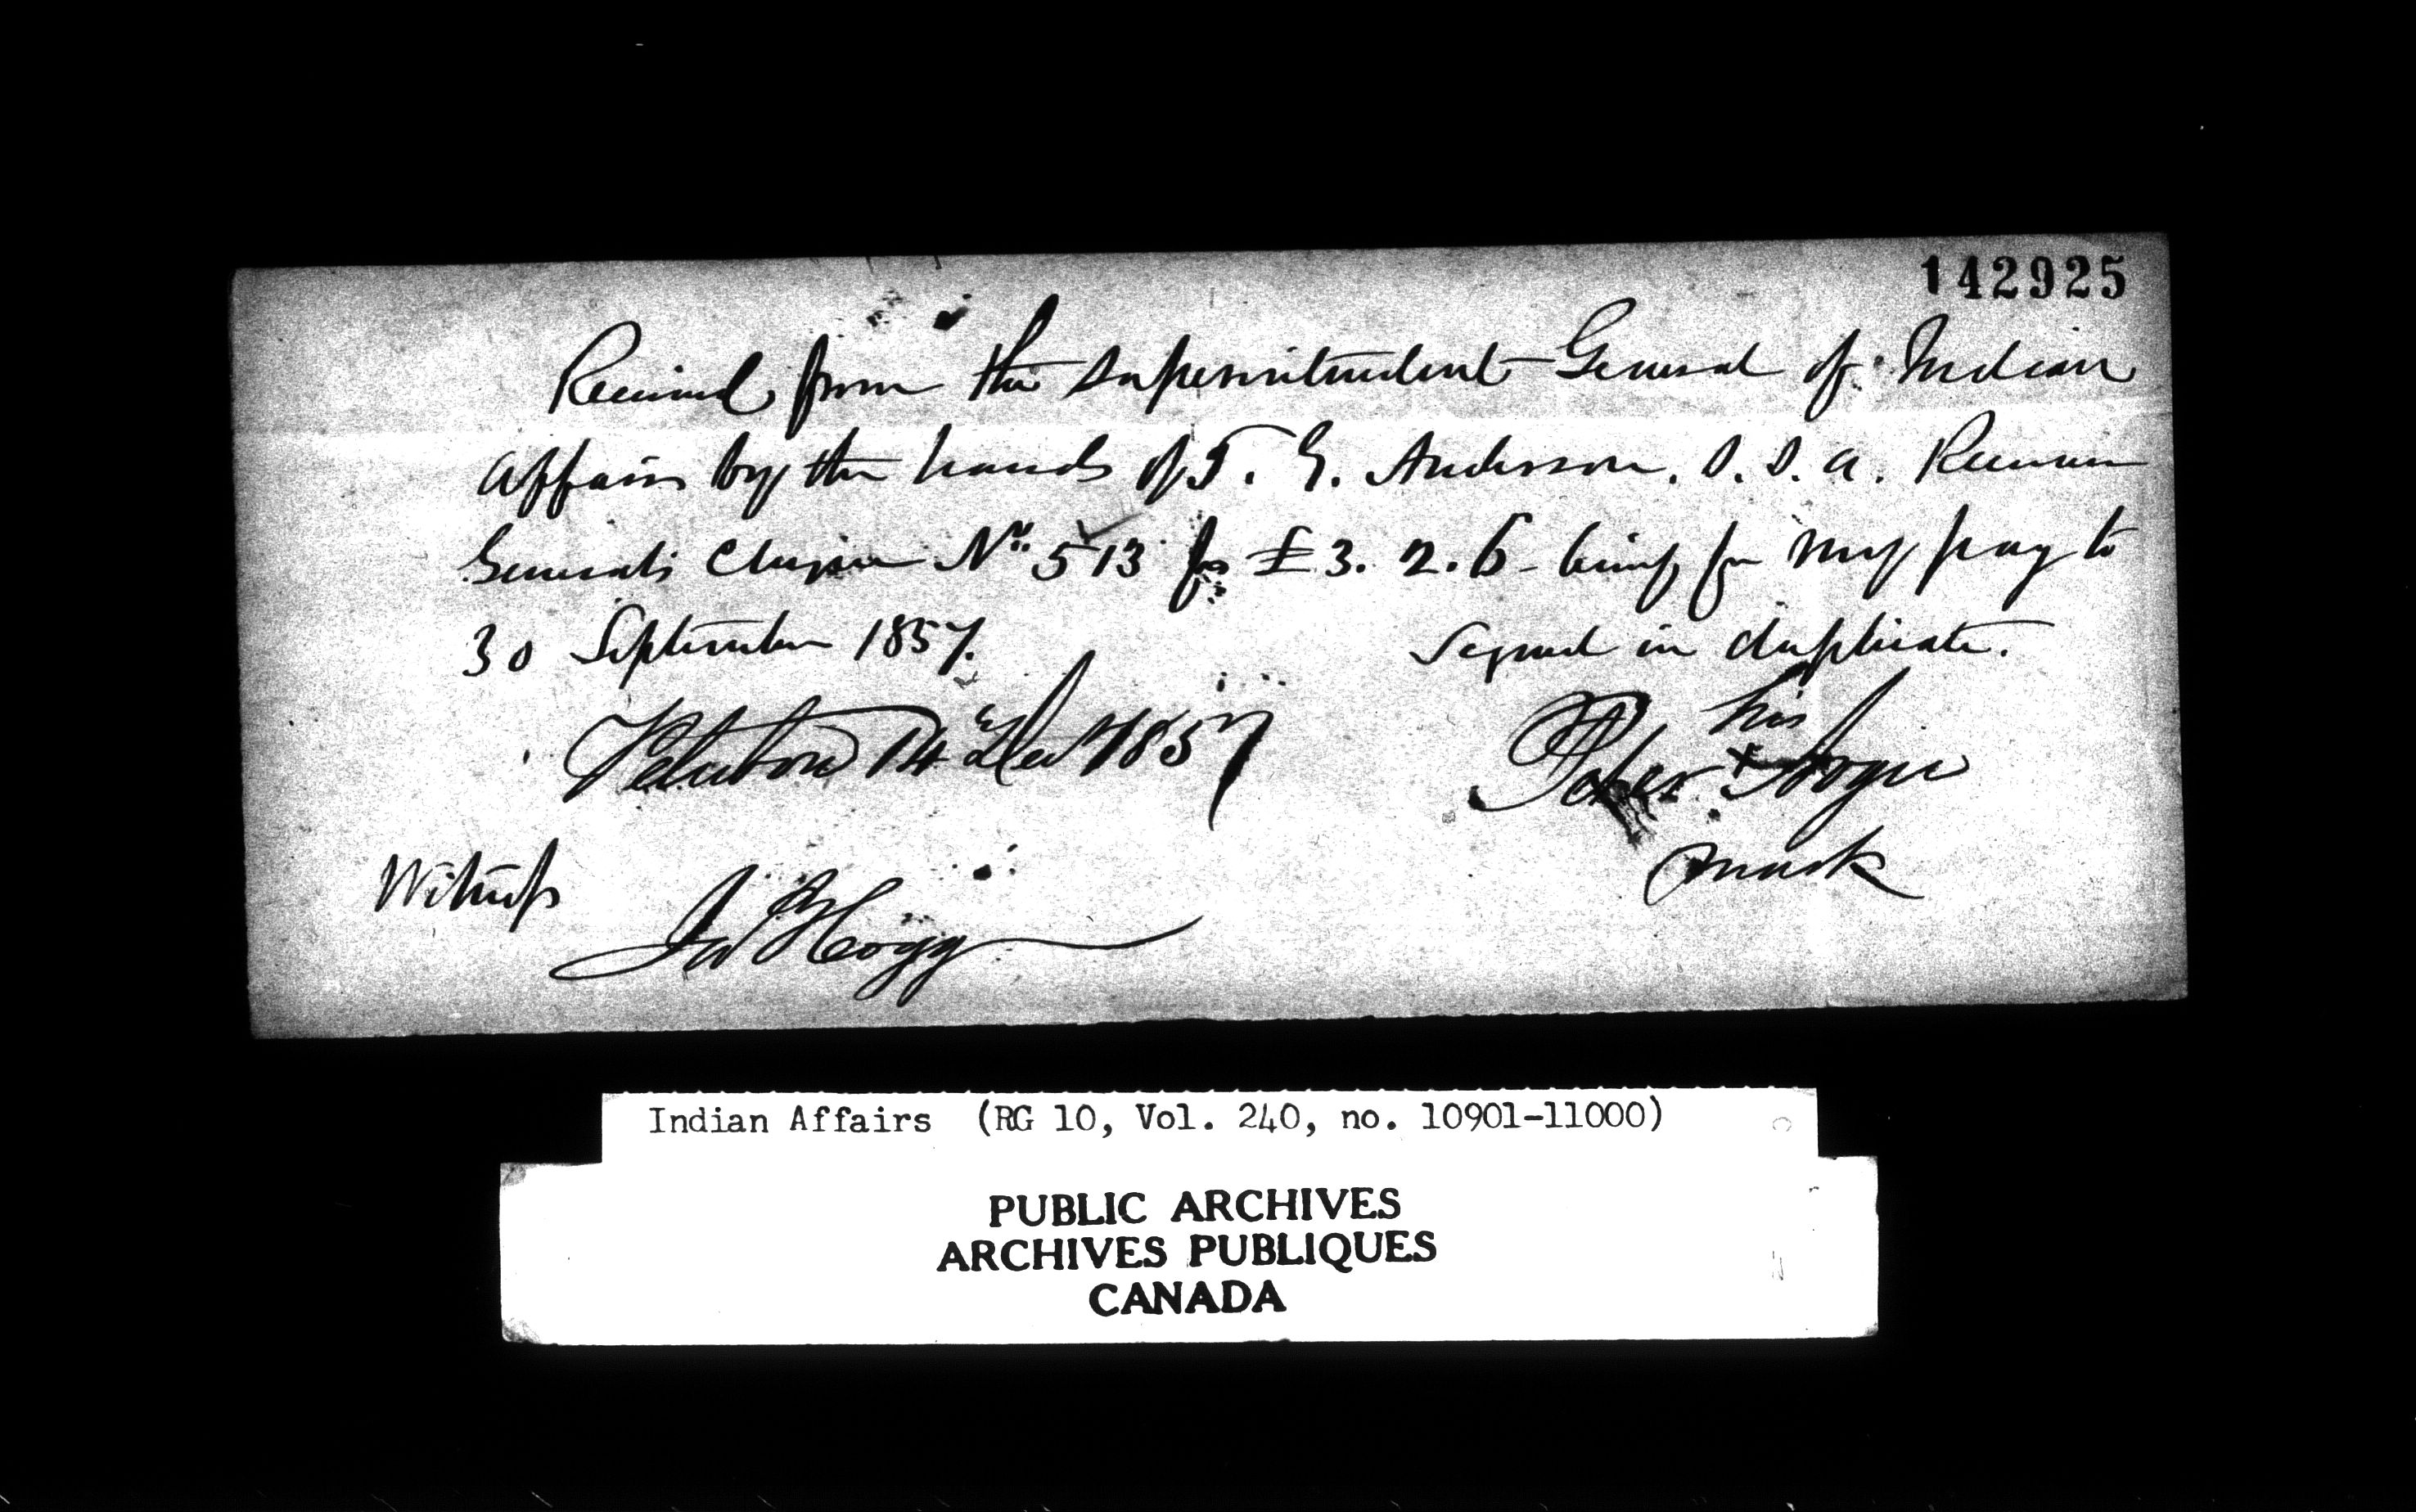 142925
Received from the Superintendent General of Indian
Affairs by the hands of T. G. Anderson. S. S. A. Receiver
General's Cheque No. 513 for £3. 2. 6 - being for my pay to
30 September 1857.
Signed in duplicate.
14 Dec 1857
his
Peter x
mark
Witness
Hogg
Indian Affairs (RG 10, Vol. 240, no. 10901-11000)
PUBLIC ARCHIVES
ARCHIVES PUBLIQUES
CANADA